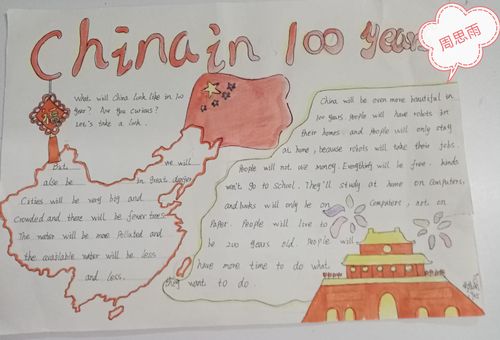 China in 100 years
周思雨
福
What will China look like in 100
year? Are you curious?
Let's take a look.
But we will
also be in great danger
Cities will be very big and
Crowded and there will be fewer trees
The water will be more Polluted and
the available water will be less
and less.
China will be even more beautiful in
100 years. People will have robots in
their homes. and People will only stay
at home, because robots will take their jobs.
People will not use money. Everything will be free. kinds
won't go to school. They'll study at home on computers,
and books will only be on computers, not on
Paper. People will live to
be 200 years old. People will
have more time to do what
they want to do.